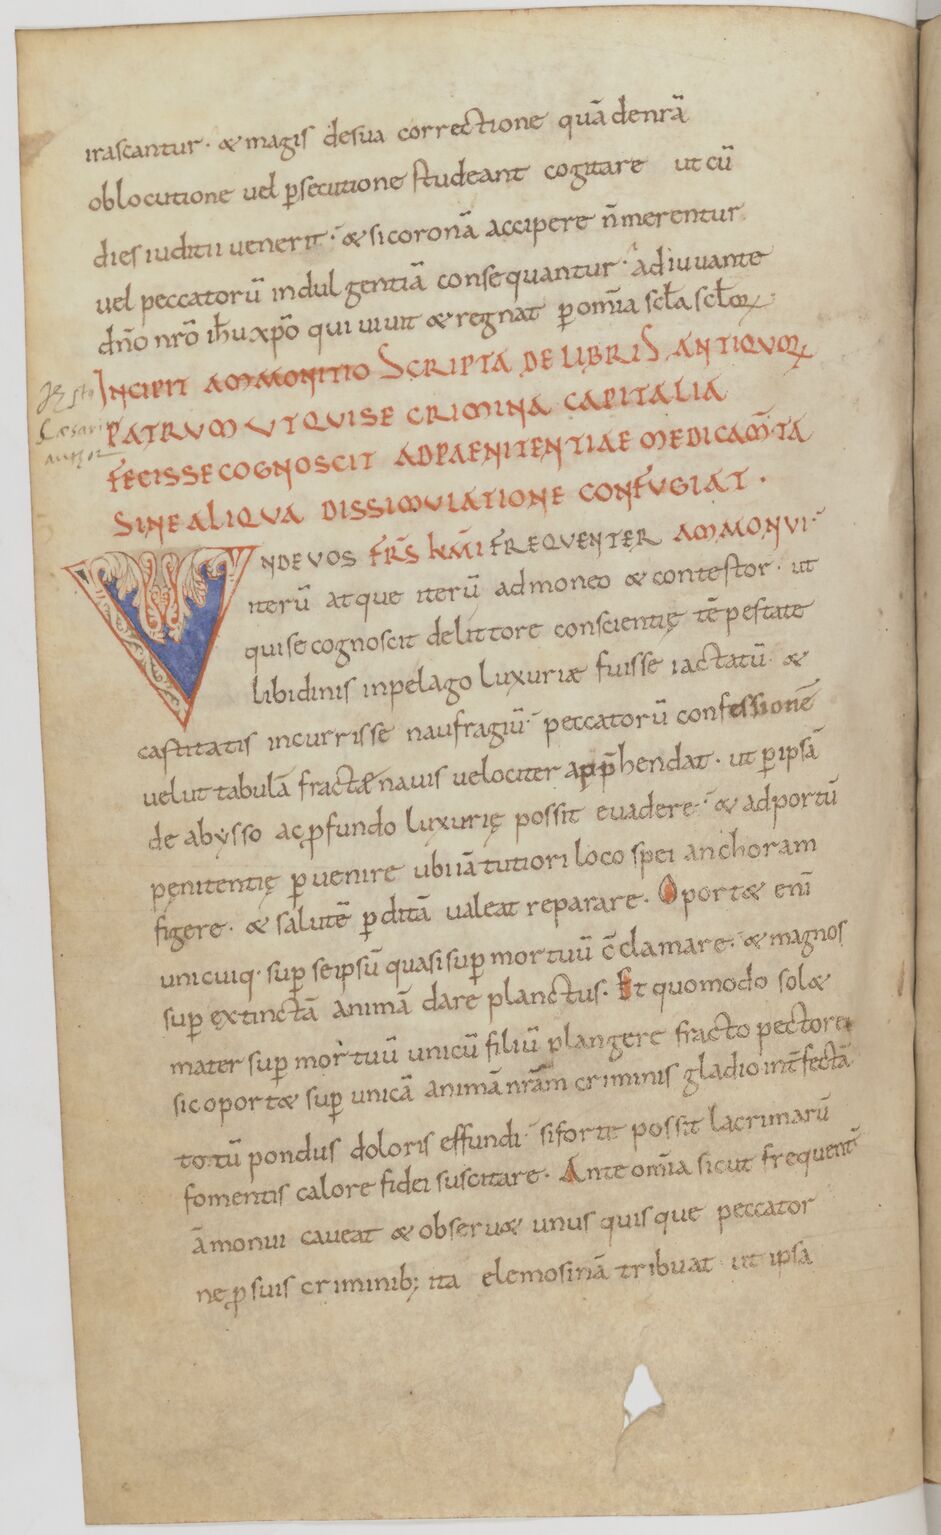 irascantur· & magis desua correctione quā denrā
oblocutione uel ꝑsecutione studeant cogitare ut cū
dies iuditii uenerit· & si coronā accipere n̄ merentur
uel peccatorū indulgentiā consequantur· adiuuante
dn̄o nr̄o ih̄u xp̄o qui uiuit & regnat ꝑ om̄ia scl̄a scl̄oꝝ·
INCIPIT AMMONITIO SCRIPTA DE LIBRIS ANTIQUOꝜ
PATRUM UT QUI SE CRIMINA CAPITALIA
FECISSE COGNOSCIT AD PAENITENTIAE MEDICAM̄TA
SINE ALIQUA DISSIMULATIONE CONFUGIAT·
Cæsarii
UNDE VOS FR̄S KM̄I FREQUENTER AMMONUI·
iterū atque iterū admoneo & contestor· ut
qui se cognoscit de littore conscientię tēpestate
libidinis in pelago luxuriæ fuisse iactatū· &
castitatis incurrisse naufragiū· peccatorū confessionē
uelut tabulā fractæ nauis uelociter app̄hendat· ut ꝑ ipsā
de abysso ac ꝓfundo luxurię possit euadere· & ad portū
pęnitentię ꝑuenire ubi iā tutiori loco spei anchoram
figere· & salutē ꝑditā ualeat reparare· Oport& enī
unicuiq· suꝑ seipsū quasi suꝑ mortuū c̄clamare· & magnos
suꝑ extinctā animā dare planctus· Et quomodo sol&
mater suꝑ mortuū unicū filiū plangere fracto pectore
sic oport& suꝑ unicā animā nr̄am criminis gladio int̄fectā
totū pondus doloris effundi· si forte possit lacrimarū
fomentis calore fidei suscitare· Ante om̄ia sicut frequent̄
āmonui caueat & obseru& unus quisque peccator
ne ꝓ suis criminib; ita elemosinā tribuat ut ipsa